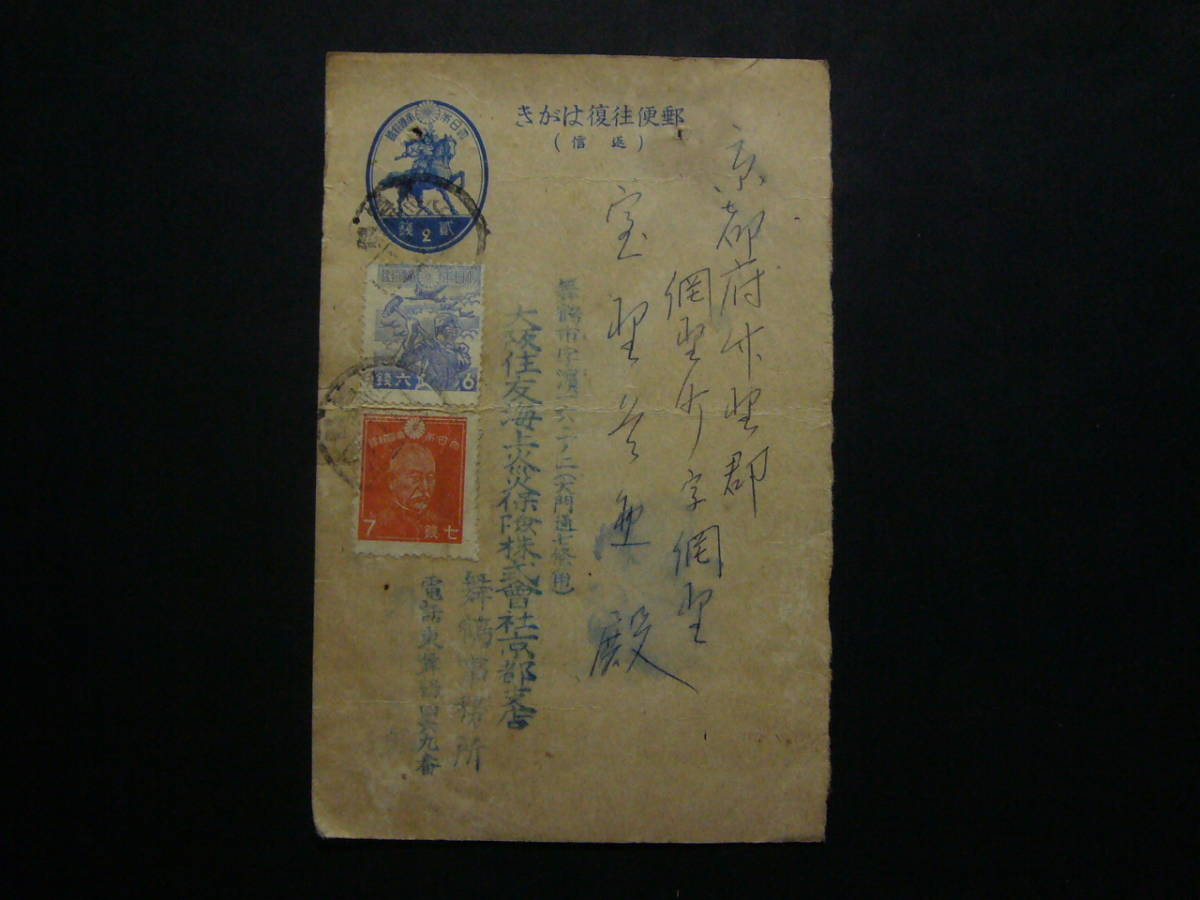 郵便往復はがき
(返信)
大日本帝國郵便
貳 2 錢
大日本帝國郵便
六錢 6
大日本帝國郵便
7 七錢
京都府竹野郡
網野町字網野
殿
舞鶴市字濱
大阪住友海上火災保険株式會社京都支店
舞鶴事務所
電話東舞鶴四六九番